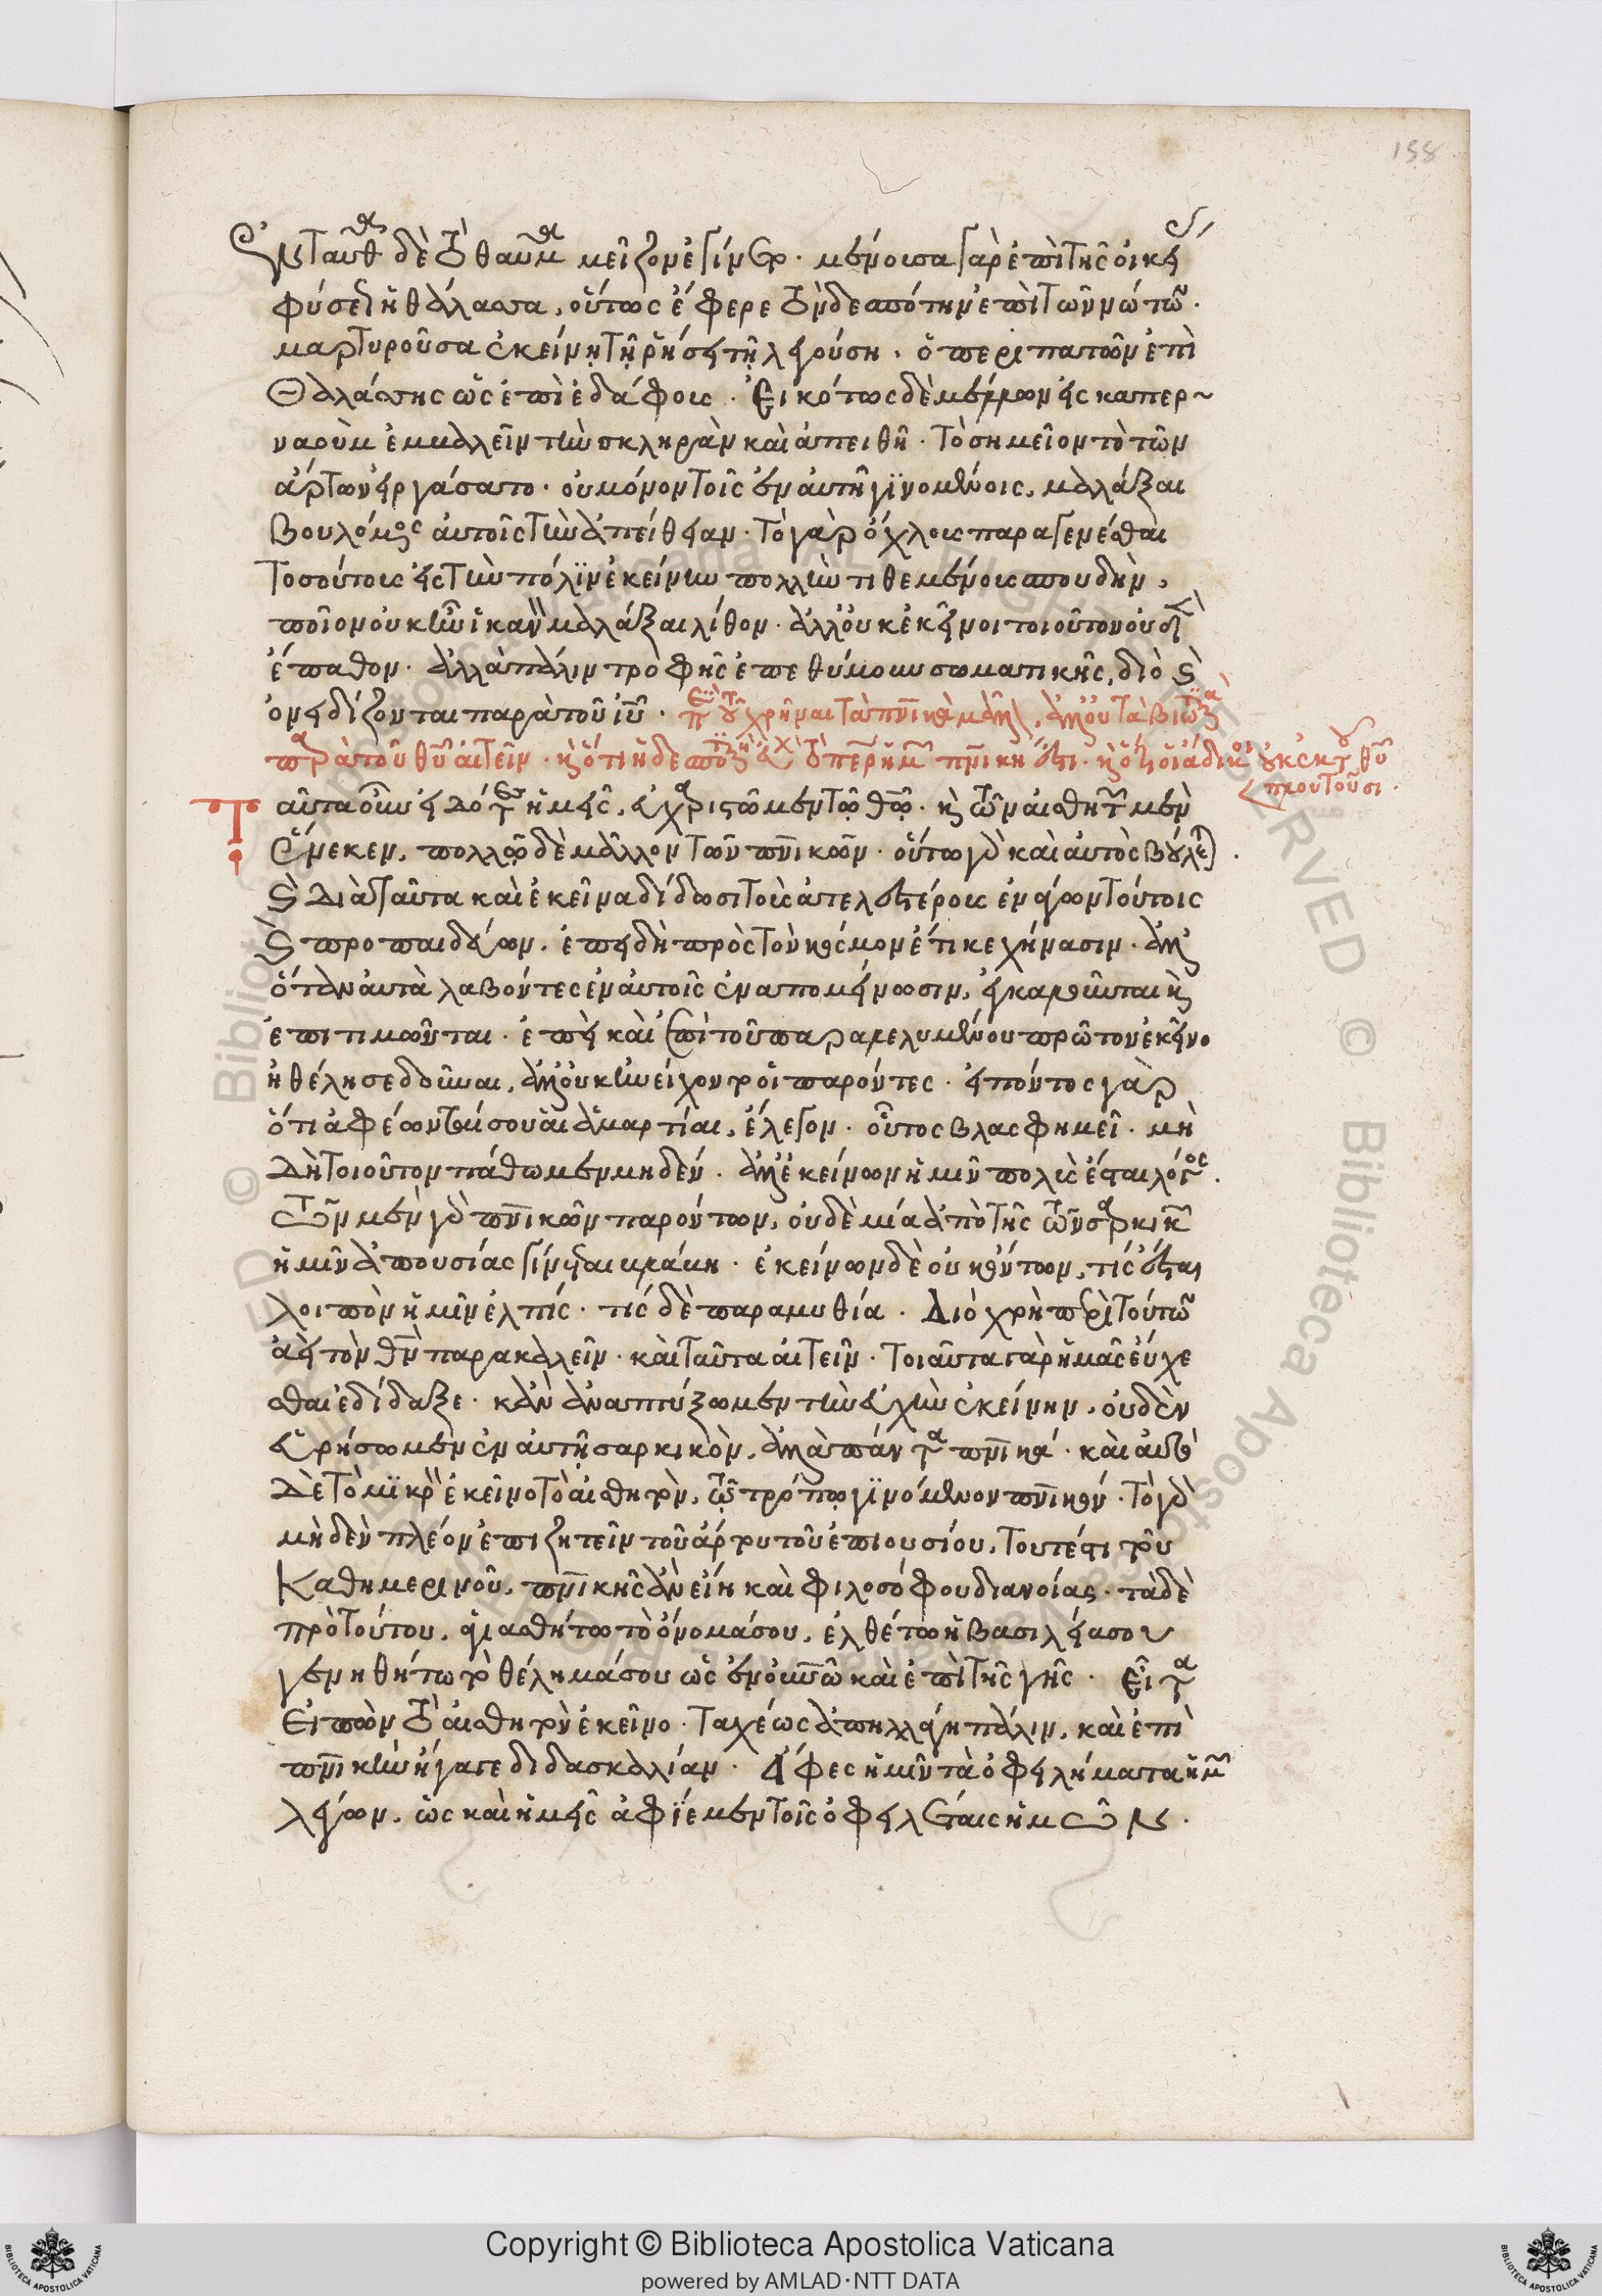 158
Ἐνταῦθα δὲ τὸ θαῦμα μεῖζον ἐγίνετο. μένουσα γὰρ ἐπὶ τῆς οἰκείας
φύσεως ἡ θάλασσα, οὕτως ἔφερε τὸν δεσπότην ἐπὶ τῶν νώτων.
μαρτυροῦσα ἐκείνῃ τῇ ῥήσει τῇ λεγούσῃ. ὁ περιπατῶν ἐπὶ
θαλάσσης ὡς ἐπὶ ἐδάφοις. Εἰκότως δὲ μέλλων εἰς καπερ-
ναοὺμ ἐμβαλεῖν τὴν σκληρὰν καὶ ἀπειθῆ. τὸ σημεῖον τὸ τῶν
ἄρτων εἰργάσατο. οὐ μόνον τοῖς ἐν αὐτῇ γϊνομένοις, μαλάξαι
βουλόμενος αὐτοῖς τὴν ἀπείθειαν. τὸ γὰρ ὄχλοις παραγενέσθαι
τοσούτοις εἰς τὴν πόλϊν ἐκείνην πολλὴν τιθεμένοις σπουδήν,
ποῖον οὐκ ἦν ἱκανὸν μαλάξαι λίθον. ἀλλ' οὐκ ἐκεῖνοι τοιοῦτον οὐδὲν
ἔπαθον. ἀλλὰ πάλιν τροφῆς ἐπεθύμουν σωματικῆς, διὸ καὶ
ὀνειδίζονται παρὰ τοῦ ἰυ.
παρὰ τοῦ θυ αἰτεῖν.
Ταῦτα οὖν εἰδότες ἡμεῖς, εὐχαριστῶμεν τῷ θῶ. καὶ τῶν αἰσθητῶν μὲν
ἕνεκεν, πολλῷ δὲ μᾶλλον τῶν πνικῶν. οὕτω γὰρ καὶ αὐτὸς βούλεται.
καὶ διὰ ταῦτα κἀκεῖνα δίδωσι τοὺς ἀτελεστέρους ἐνάγων τούτοις
καὶ προπαιδεύων. ἐπειδὴ πρὸς τὸν κόσμον ἔτι κεχήνασιν. ἀλλ'
ὅταν αὐτὰ λαβόντες ἐν αὐτοῖς ἐναπομείνωσιν, ἐγκαλοῦνται καὶ
ἐπιτιμῶνται. ἐπεὶ καὶ ἐπὶ τοῦ παραλελυμένου πρῶτον ἐκεῖνο
ἠθέλησε δοῦναι, ἀλλ' οὐκ ἠνείχοντο οἱ παρόντες. εἰπόντος γὰρ
ὅτι ἀφέωνταί σου αἱ ἁμαρτίαι, ἔλεγον. οὗτος βλασφημεῖ. μὴ
δὴ τοιοῦτον πάθωμεν μηδέν. ἀλλ' ἐκείνων ἡμῖν πολὺς ἔσται λόγος.
τῶν μὲν γὰρ πνικῶν παρόντων, οὐδὲ μία ἀπὸ τῆς τῶν σαρκικῶν
ἡμῖν ἀπουσίας γίνεται βλάβη. ἐκείνων δὲ οὐκ ὄντων, τίς ἔσται
λοιπὸν ἡμῖν ἐλπίς. τίς δὲ παραμυθία. Διὸ χρὴ περὶ τούτων
ἀεὶ τὸν θν παρακαλεῖν. καὶ ταῦτα αἰτεῖν. Τοιαῦτα γὰρ ἡμᾶς εὔχε
σθαι ἐδίδαξε. κἂν ἀναπτύξωμεν τὴν εὐχὴν ἐκείνην, οὐδὲν
εὑρήσωμεν ἐν αὐτῇ σαρκικὸν, ἀλλὰ πάντα πνικά. καὶ αὐτὸ
δὲ τὸ μϊκρὸν ἐκεῖνο τὸ αἰσθητὸν, τῷ τρόπῳ γϊνόμενον πνικόν. τὸ γὰρ
μηδὲν πλέον ἐπιζητεῖν τοῦ ἄρτου τοῦ ἐπιουσίου, τουτέστι τοῦ
καθημερινοῦ, πνικῆς ἂν εἴη καὶ φιλοσόφου διανοίας. τὰ δὲ
πρὸ τούτου, ἁγιασθήτω τὸ ὄνομά σου, ἐλθέτω ἡ βασιλεία σου
γενηθήτω τὸ θέλημά σου ὡς ἐν οὐνῶ καὶ ἐπὶ τῆς γῆς. Εἶτα
εἰπὼν τὸ αἰσθητὸν ἐκεῖνο. Ταχέως ἀπηλλάγη πάλιν, καὶ ἐπὶ
πνικὴν ἤγαγε διδασκαλίαν. Ἄφες ἡμῖν τὰ ὀφειλήματα ἡμῶν
λέγων, ὡς καὶ ἡμεῖς ἀφϊεμεν τοῖς ὀφειλέταις ἡμῶν.
Copyright © Biblioteca Apostolica Vaticana
powered by AMLAD·NTT DATA